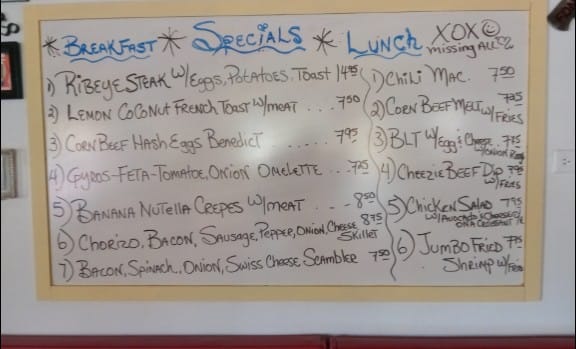 * BREAKFAST * SPECIALS * LUNCH XOXO
missing ALL
1) RIBEYE STEAK W/Eggs, POTATOES, TOAST 1495
2) LEMON COCONUT FRENCH TOAST W/MEAT . . . 750
3) CORN BEEF HASH Eggs BENEDICT . . . . . . 795
4) GYROS-FETA-TOMATOE, ONION OMELETTE . . .
5) BANANA NUTELLA CREPES W/MEAT . . . - 850
6) CHORIZO, BACON, SAUSAGE, PEPPER, ONION, CHEESE 875
SKILLET
7) BACON, SPINACH, ONION, SWISS CHEESE, SCAMBLER 750
1) CHILI MAC. 750
2) CORN BEEF MELT W/FRIES 795
3) BLT W/Egg & Cheese 775
W/ONION
4) CHEEZIE BEEF DIP
W/FRIES
5) CHICKEN SALAD 795
W/AVOCADO & CHEESE
ON A CROISSANT
6) JUMBO FRIED
SHRIMP W/FRIES